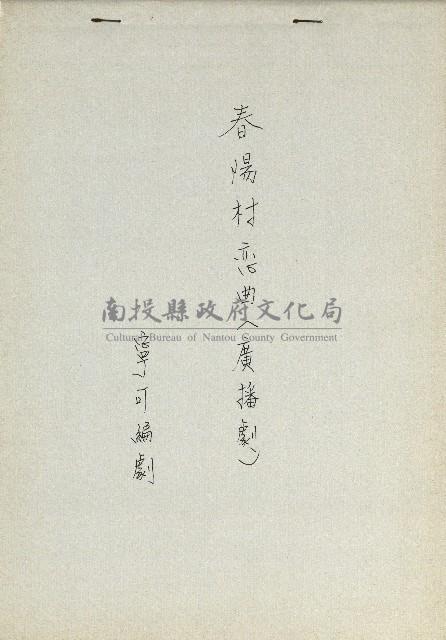 春陽村恋曲(廣播劇)
寧可編劇
南投縣政府文化局
Cultural Bureau of Nantou County Government